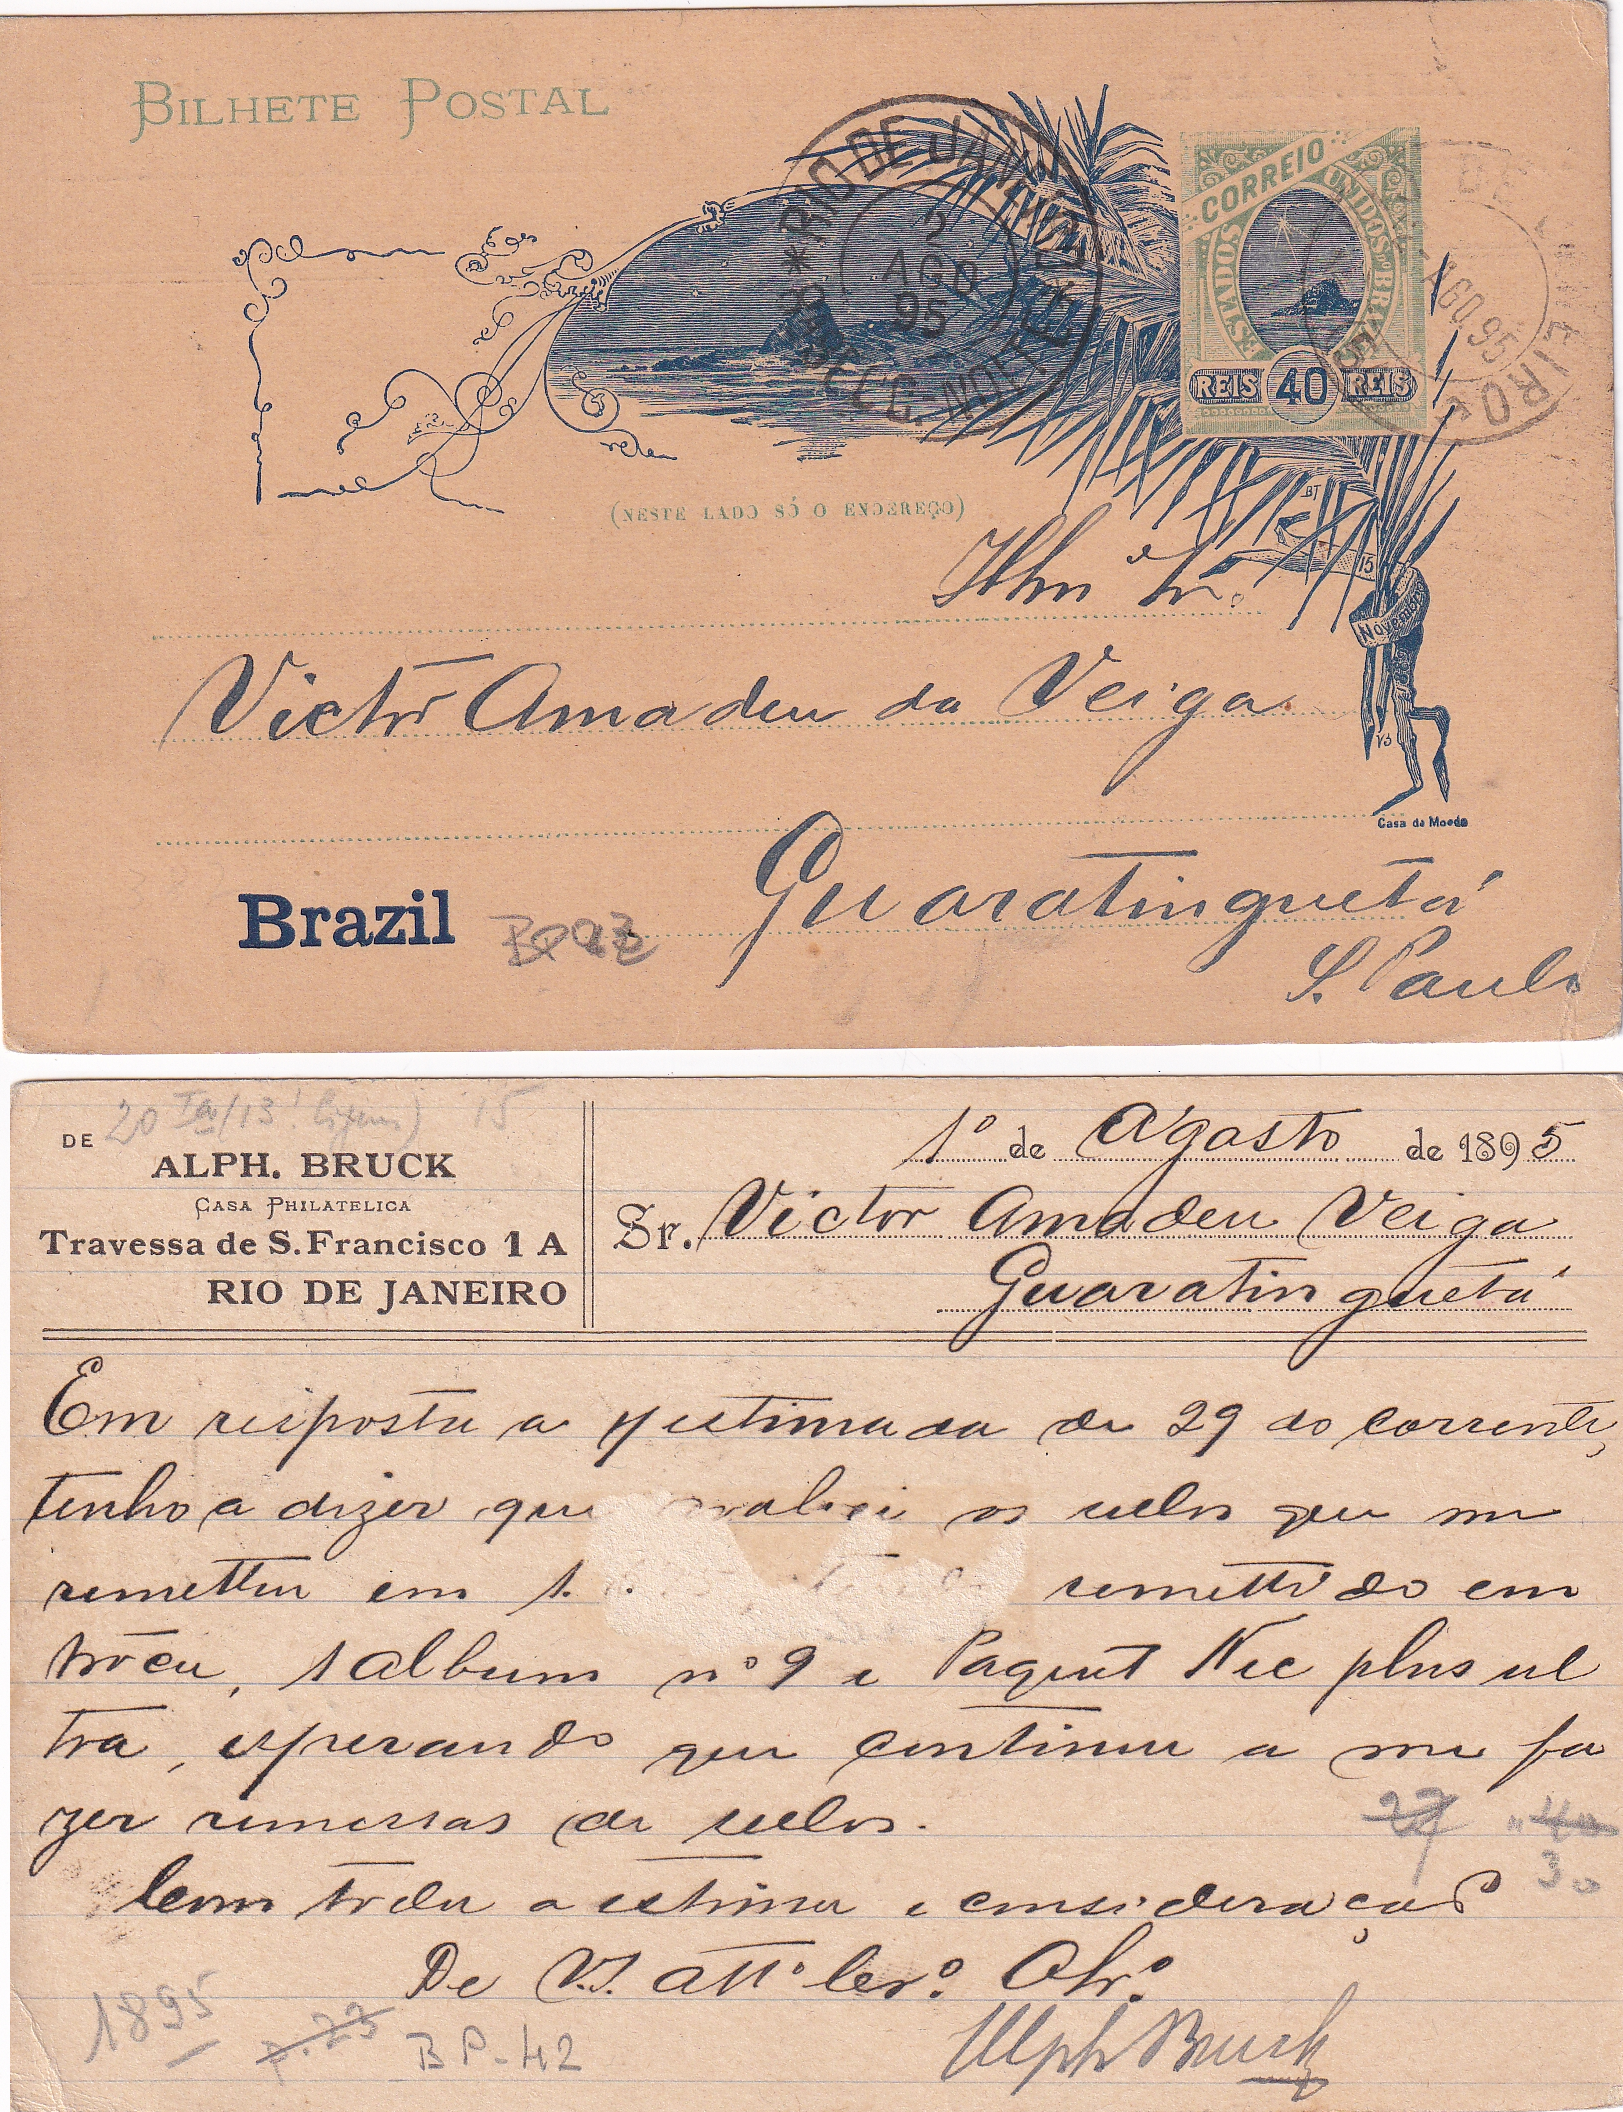 BILHETE POSTAL
RIO DE JANEIRO
2
AGO
95
CORREIO
ESTADOS UNIDOS DO BRAZIL
REIS 40 REIS
DE
AGO. 95
EIRO
(NESTE LADO SÓ O ENDEREÇO)
BT
15
Novembro
Illm Sr.
Victor Amadeu da Veiga
VS
Casa da Moeda
Guaratinguetá
Brazil
S. Paulo
20
15
DE
ALPH. BRUCK
CASA PHILATELICA
Travessa de S. Francisco 1 A
RIO DE JANEIRO
1º de Agosto de 1895
Sr. Victor Amadeu Veiga
Guaratinguetá
Em resposta a estimada de 29 do corrente,
tenho a dizer que os sellos que me
remetteu em 1. remettido em
troca, 1 album nº 9 e Paquet Nec plus ul
tra, esperando que continue a me fa
zer remessas de sellos.
Com toda a estima e consideração
De V.S. attº Cerº. Obrº
Alph Bruck
30
1895
BP-42